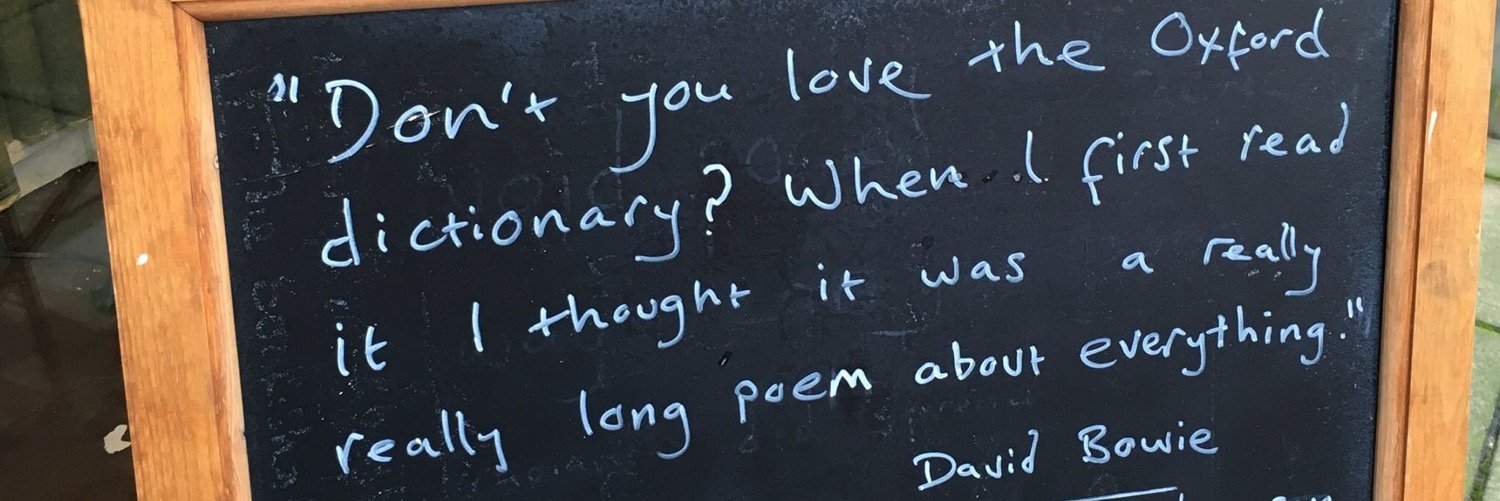 "Don't you love the Oxford
dictionary? When I first read
it I thought it was a really
really long poem about everything."
David Bowie